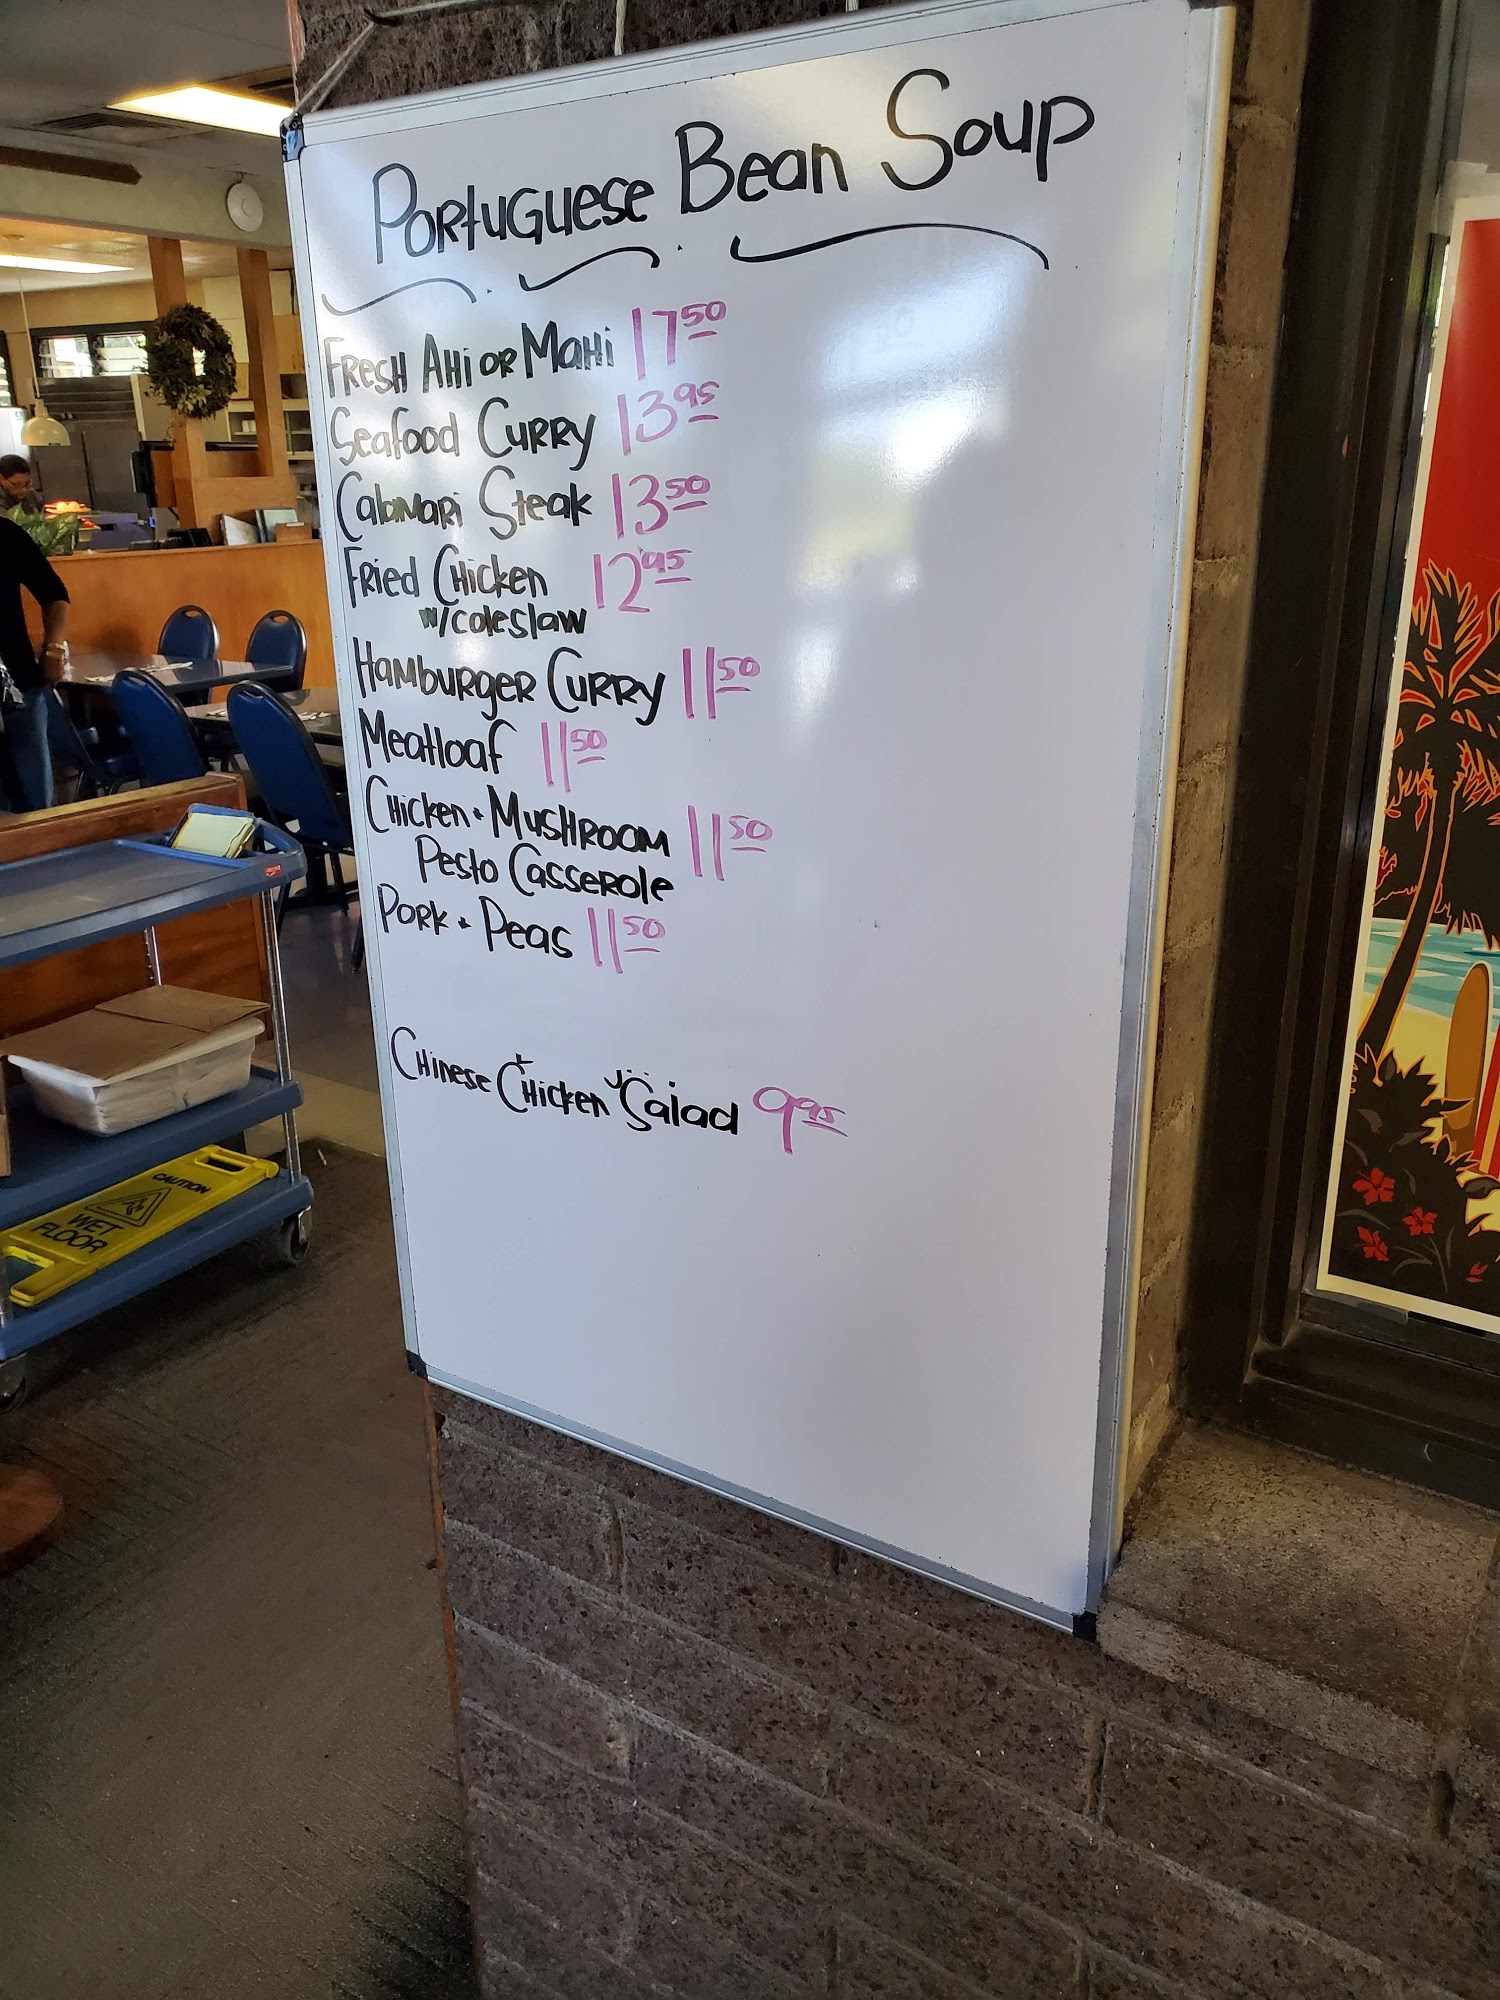 Portuguese Bean Soup
Fresh Ahi or Mahi 17 50
Seafood Curry 13 95
Calamari Steak 13 50
Fried Chicken 12 95
w/coleslaw
Hamburger Curry 11 50
Meatloaf 11 50
Chicken + Mushroom 11 50
Pesto Casserole
Pork + Peas 11 50
Chinese Chicken Salad 9 95
CAUTION
WET
FLOOR